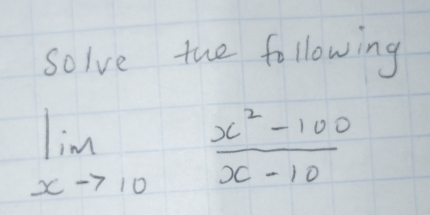 solve the following
lim x²-100
x→10 x-10